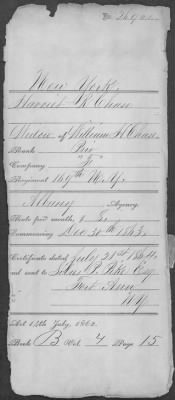 New York,
Harriet R. Chase
Widow of William H. Chase
Rank Priv
Company "G"
Regiment 169th N.Y.
Albany Agency
Rate per month, $8
Commencing Dec 30th 1863.
Certificate dated July 21st 1864,
and sent to P. Pike Esq
Fort Ann
N.Y
Act 14th July, 1862.
Book B Vol. 4 Page 15